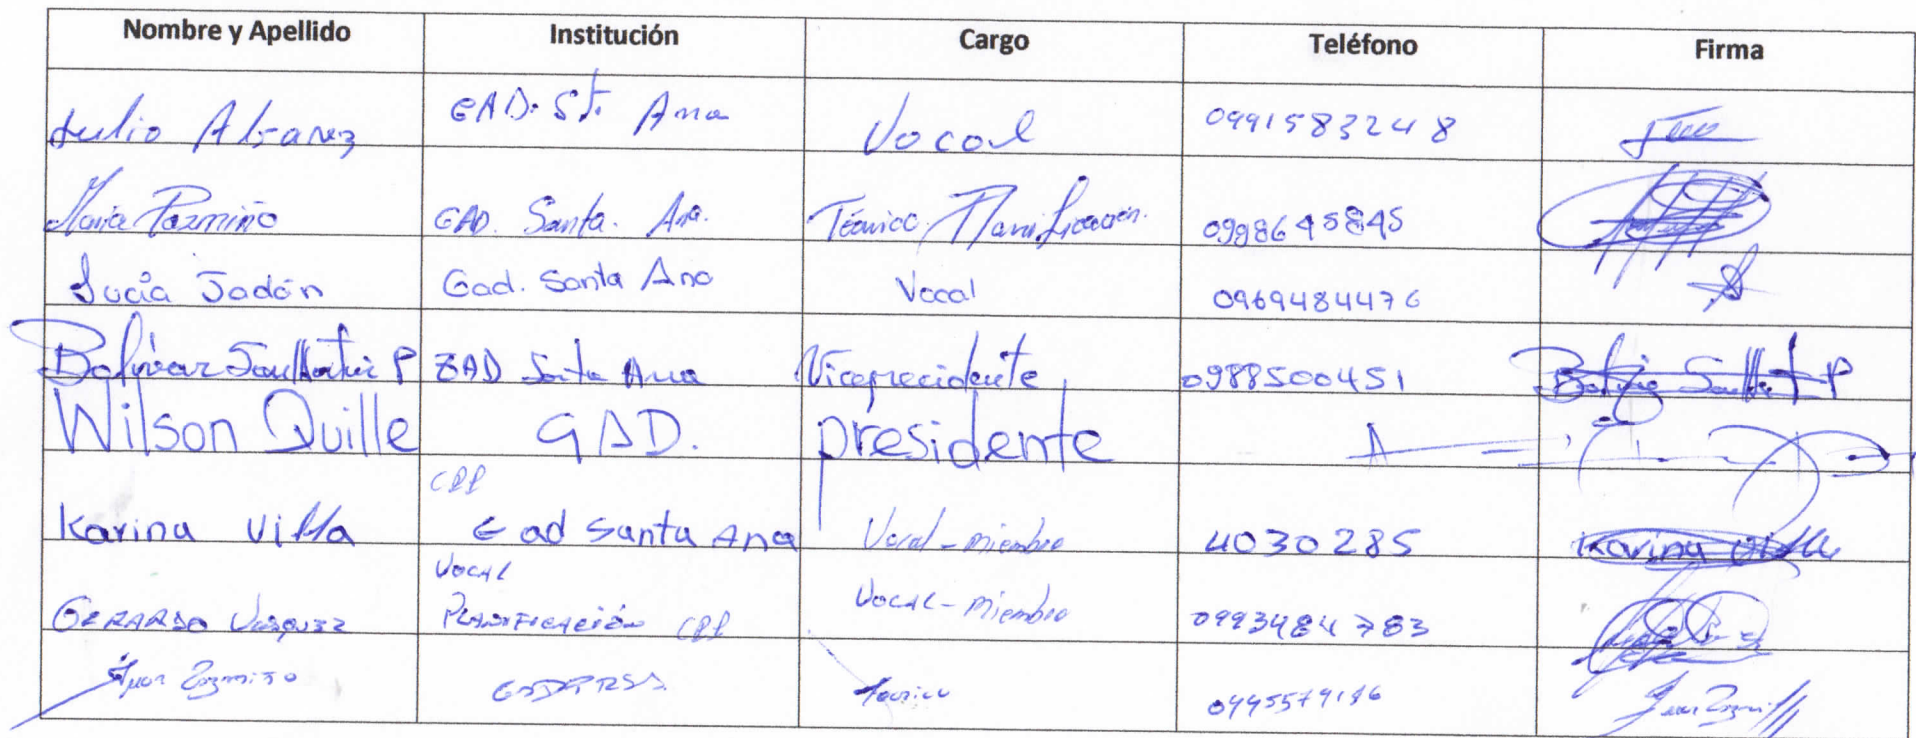 Nombre y Apellido Institución Cargo Teléfono Firma
Julio Alvarez GAD. Sta. Ana Vocal 0991583248
Maria Pazmiño GAD. Santa. Ana. Técnico Planificación. 0998645845
Lucía Jadán Gad. Santa Ana Vocal 0969484476
Bolívar P GAD Santa Ana Viceprecidente 0988500451 P
Wilson Quille GAD. presidente
CPP
Karina Villa Gad Santa Ana Vocal-miembro 4030285 Karina Villa
Vocal
GERARDO Vásquez PLANIFICACIÓN CPP Vocal-Miembro 0993484783
Juan Pazmiño Técnico